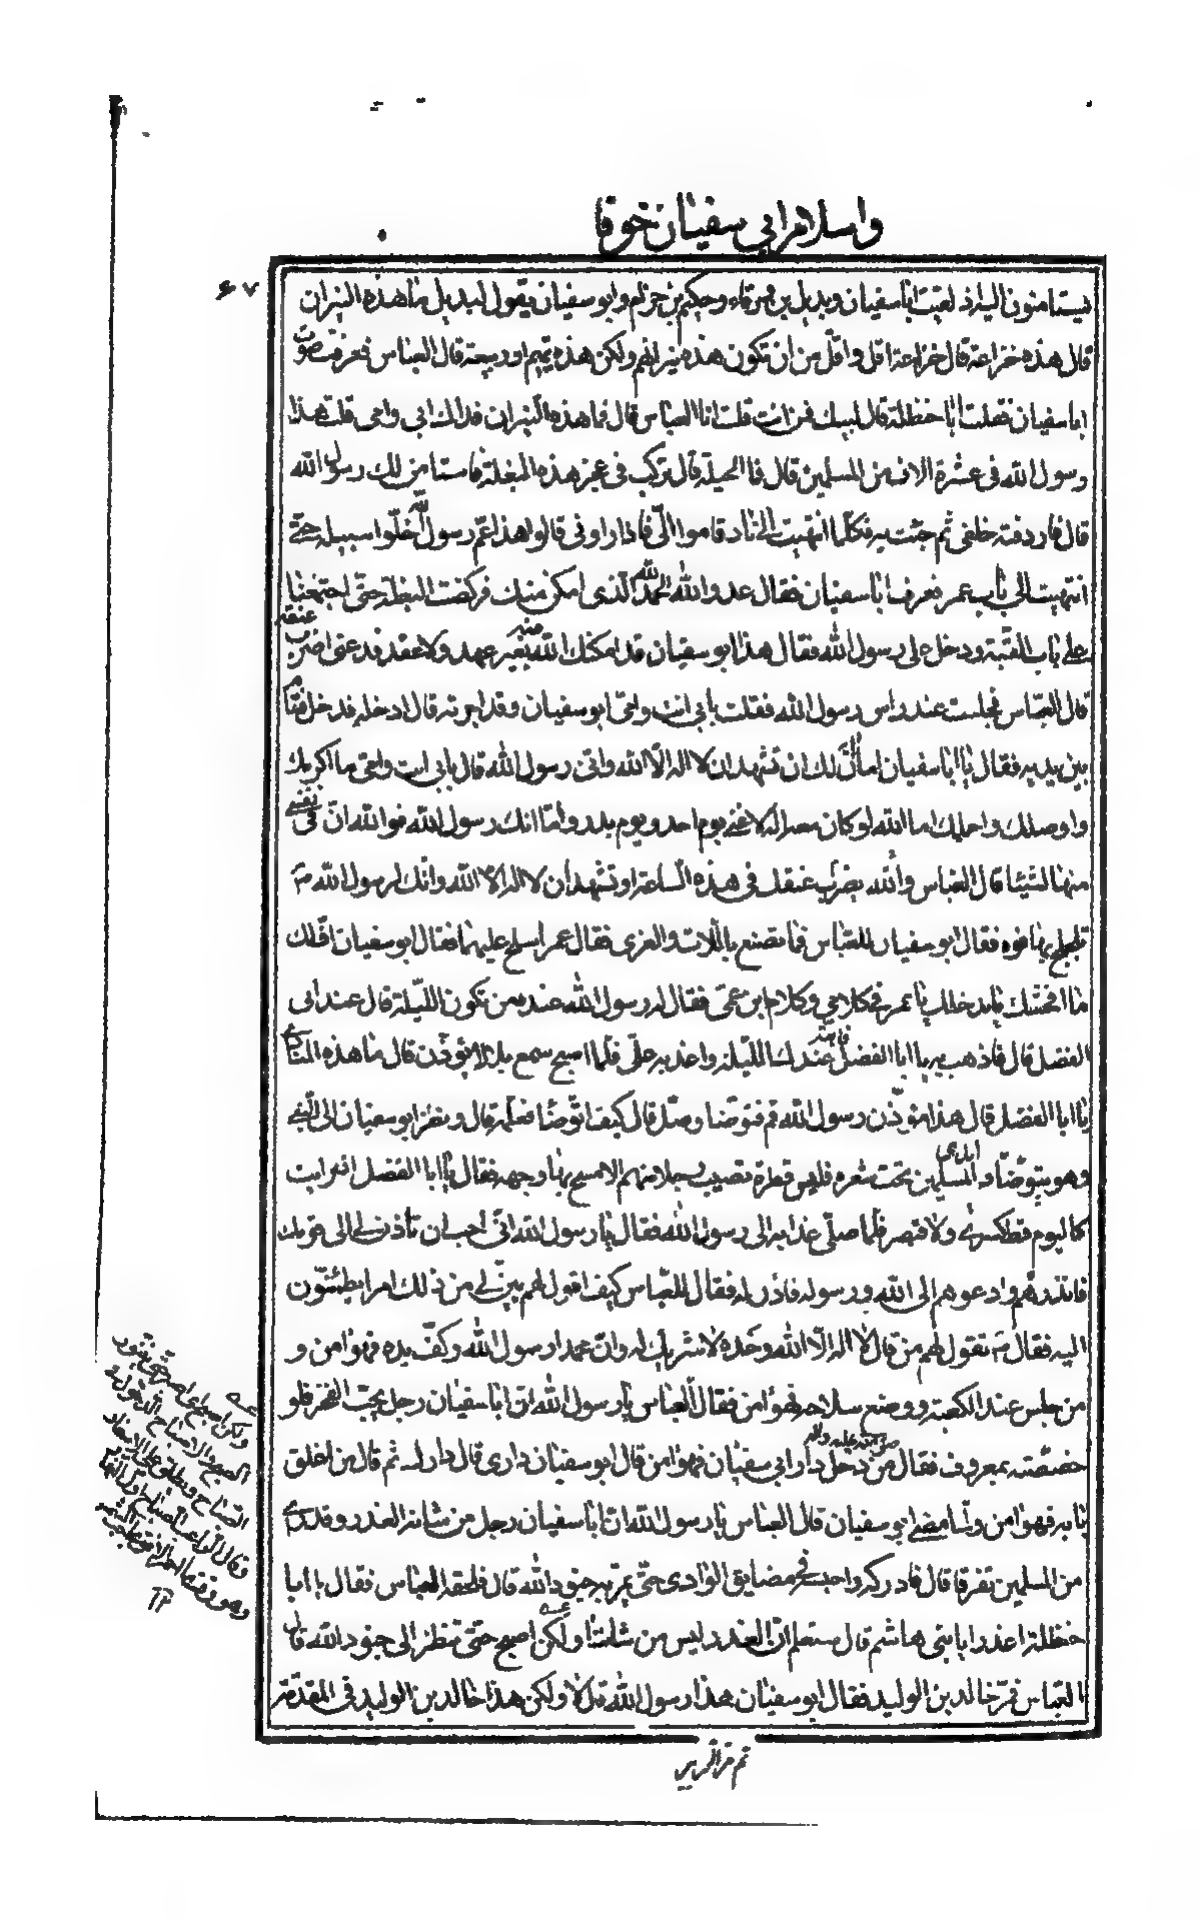 واسلام ابي سفيان خوفا
٦٧
ليستامنون اليه اذ لقيت ابا سفيان وبديل بن ورقاء وحكيم بن حزام وابو سفيان يقول لبديل ما هذه النيران
قال هذه خزاعة قال خزاعة اقل واقل من ان تكون هذه نيرانهم ولكن هذه تميم او ربيعة قال العباس فعرفت صوت
ابا سفيان فقلت ابا حنظلة قال لبيك فمن انت قلت انا العباس قال فما هذه النيران فداك ابي وامي قلت هذا
رسول الله في عشرة الاف من المسلمين قال فما الحيلة قال تركب في عجز هذه البغلة فاستامن لك رسول الله
قال فاردفته خلفي ثم جئت به فكلما انتهيت الى نار قاموا الي فاذا راوني قالوا هذا عم رسول الله خلوا سبيله حتى
انتهيت الى باب عمر فعرف ابا سفيان فقال عدو الله الحمد لله الذي امكن منك فركضت البغلة حتى اجتمعنا
على باب القبة ودخل على رسول الله فقال هذا ابو سفيان قد امكنك الله منه بغير عهد ولا عقد فدعني اضرب عنقه
قال العباس فجلست عند راس رسول الله فقلت بابي انت وامي ابو سفيان وقد اجرته قال ادخله فدخل فقام
بين يديه فقال يا ابا سفيان اما ان لك ان تشهد ان لا اله الا الله واني رسول الله قال بابي انت وامي ما اكرمك
واوصلك واحلمك اما الله لو كان معه اله لاغنى يوم احد ويوم بدر واما انك رسول الله فوالله ان في نفسي
منها لشيئا قال العباس والله يضرب عنقك في هذه الساعة او تشهد ان لا اله الا الله وانك لرسول الله
تلجلج بها فوه فقال ابو سفيان للعباس فما نصنع باللات والعزى فقال عمر اسلح عليهما فقال ابو سفيان اف لك
ما افحشك ما يدخلك يا عمر في كلامي وكلام ابن عمي فقال له رسول الله عند من تكون الليلة قال عند ابي
الفضل قال فاذهب به يا ابا الفضل فابته عندك الليلة واغد به علي فلما اصبح سمع بلالا يؤذن قال ما هذا المنادي
يا ابا الفضل قال هذا مؤذن رسول الله قم فتوضا وصل قال كيف اتوضا فعلمه قال ونظر ابو سفيان الى النبي
وهو يتوضا وايدي المسلمين تحت شعره فليس قطرة تصيب رجلا منهم الا مسح بها وجهه فقال يا ابا الفضل ان رايت
كاليوم قط لكسرى ولا قيصر فلما صلى غدا به الى رسول الله فقال يا رسول الله اني احب ان تاذن لي الى قومك
فانذرهم وادعوهم الى الله ورسوله فاذن له فقال للعباس كيف اقول لهم بين لي من ذلك امرا يطمئنون
اليه فقال تقول لهم من قال لا اله الا الله وحده لا شريك له وان محمدا رسول الله وكف يده فهو امن و
من جلس عند الكعبة ووضع سلاحه فهو امن فقال العباس يا رسول الله ان ابا سفيان رجل يحب الفخر فلو
خصصته بمعروف فقال صلى الله عليه واله من دخل دار ابي سفيان فهو امن قال ابو سفيان داري قال دارك ثم قال من اغلق
بابه فهو امن ولما مضى ابو سفيان قال العباس يا رسول الله ان ابا سفيان رجل من شانه الغدر وقد راى
من المسلمين تفرقا قال فادركه واحبسه في مضايق الوادي حتى يمر به جنود الله قال فلحقه العباس فقال يا ابا
حنظلة اغدرا يا بني هاشم قال ستعلم ان الغدر ليس من شاننا ولكن اصبح حتى تنظر الى جنود الله قال
العباس فمر خالد بن الوليد فقال ابو سفيان هذا رسول الله قال لا ولكن هذا خالد بن الوليد في المقدمة
ثم مر الزبير
الصبح والاصباح الدخول في
الصباح ويطلق على الاسفار